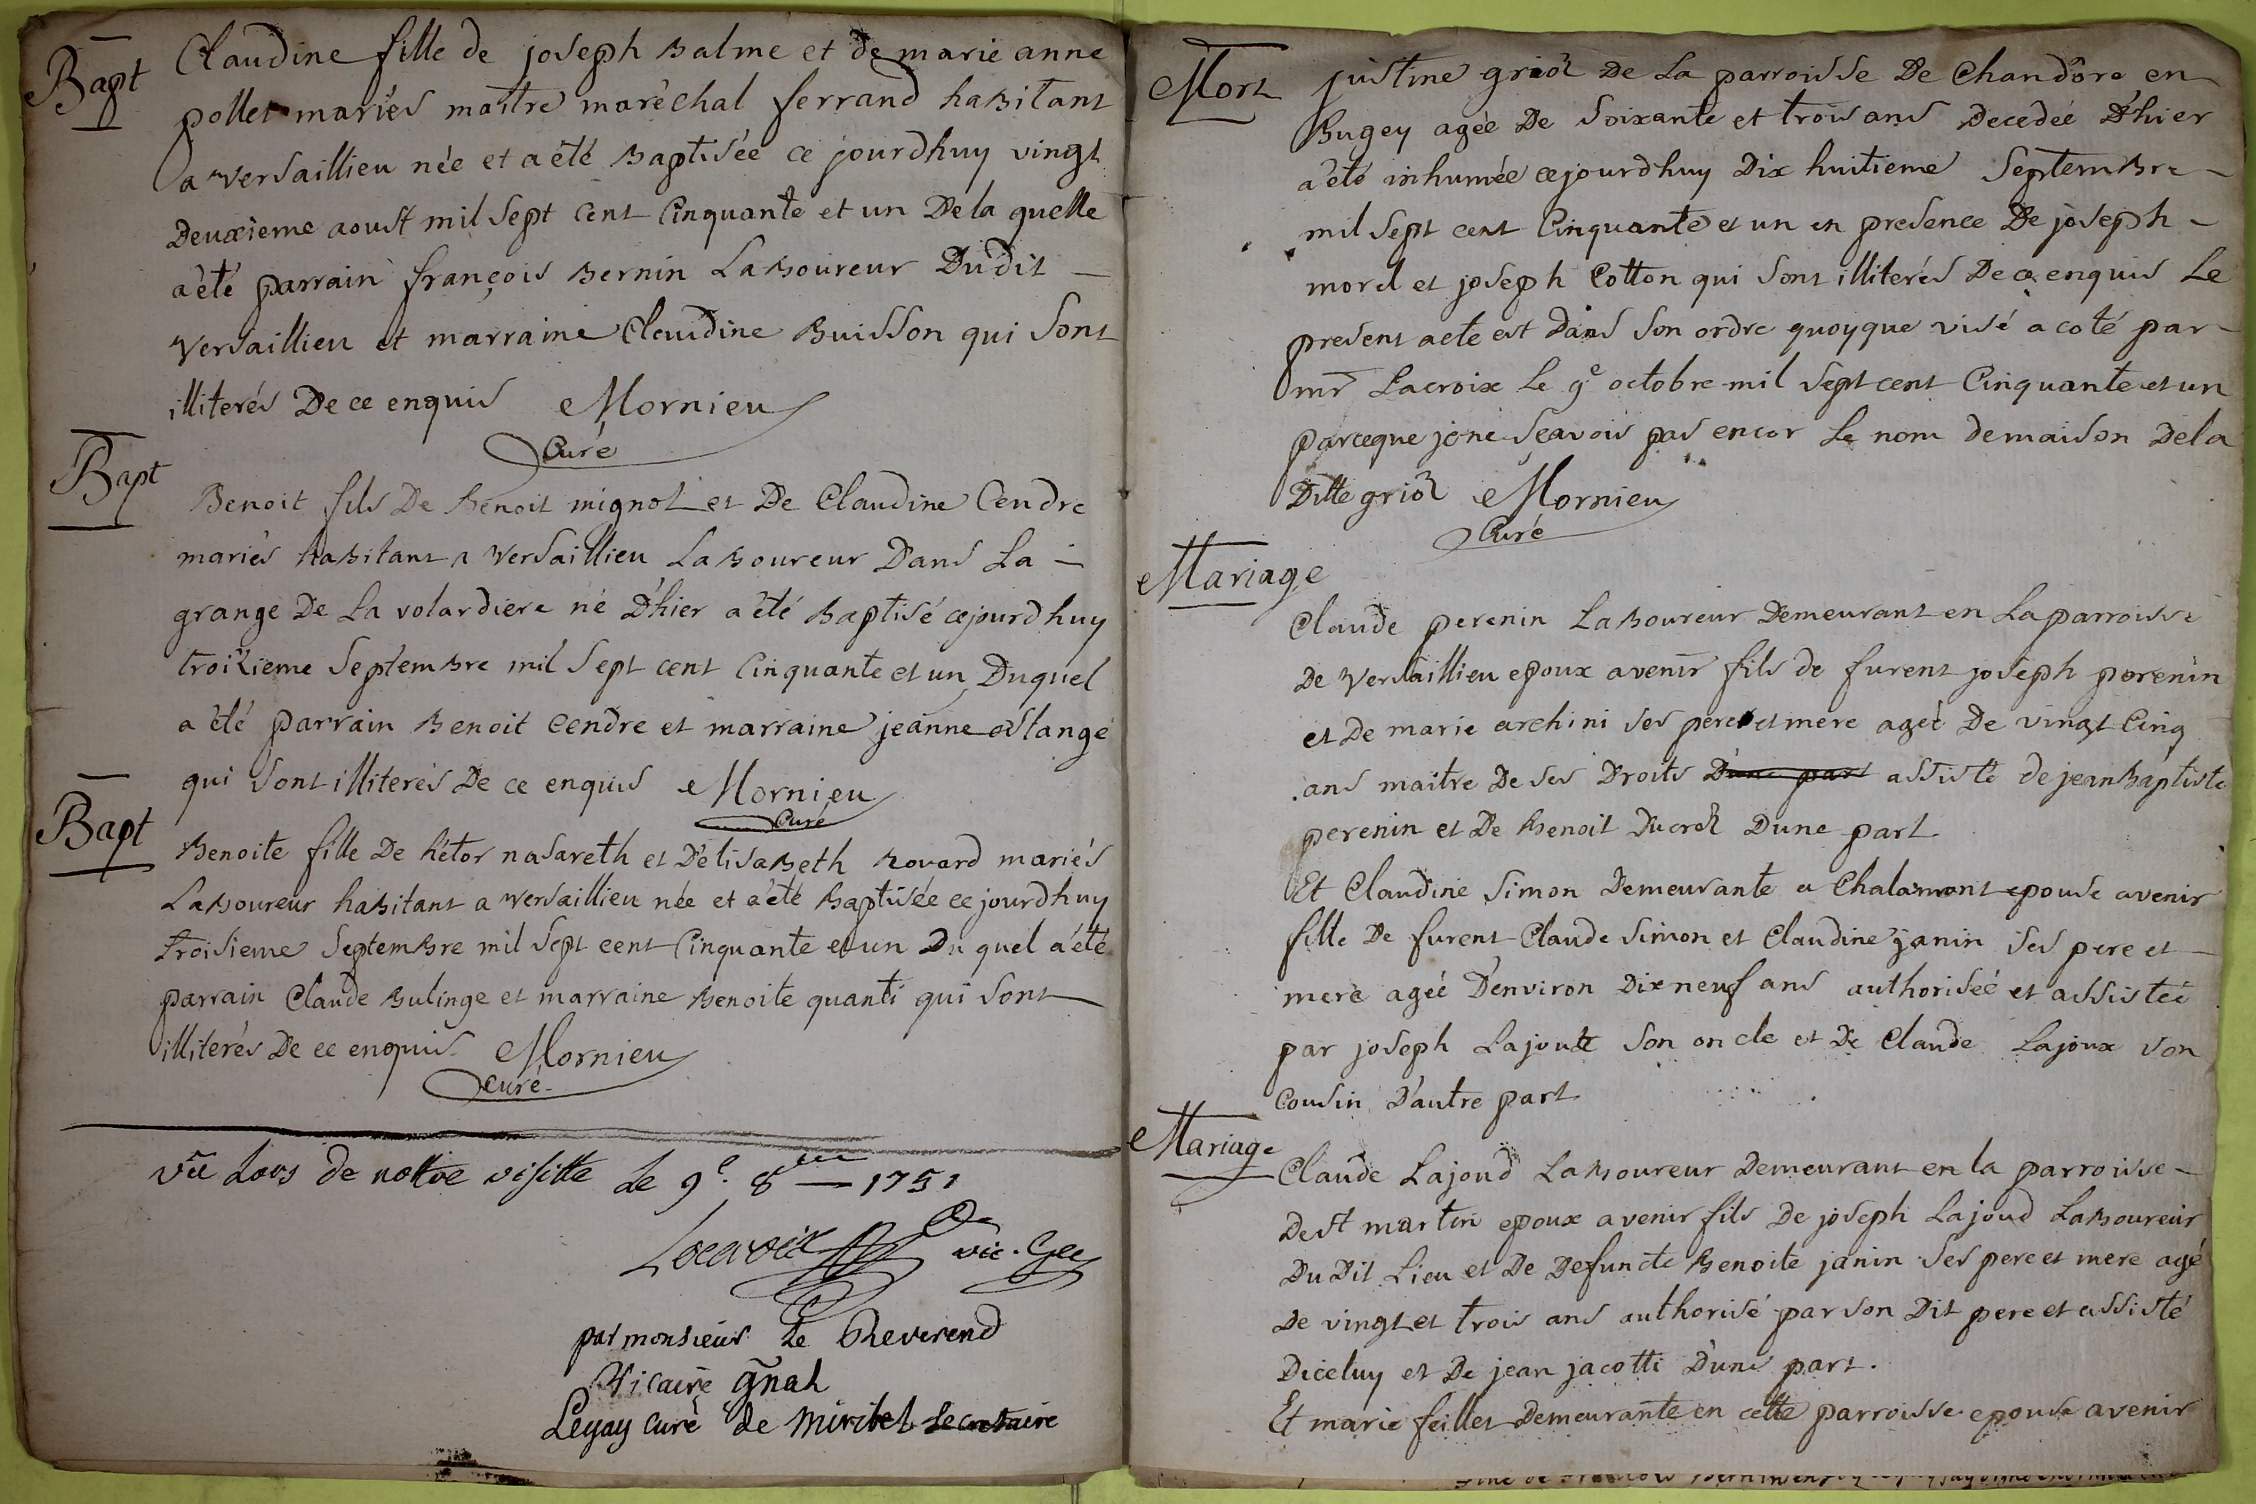 Bapt
Claudine fille de joseph Balme et de marie anne
pollet mariés maitre maréchal ferrand habitant
a versaillieu née et a été Baptisée ce jourdhuy vingt
Deuxieme aoust mil sept cent Cinquante et un De la quelle
a été parrain françois Bernin Laboureur Dudit
versaillieu et marraine Claudine Buisson qui sont
illiterés De ce enquis Mornieu
Curé
Bapt
Benoit fils De Benoit mignot et De Claudine Cendre
mariés habitant a versaillieu Laboureur Dans La
grange De La volardiere né D'hier a été Baptisé cejourdhuy
troisieme Septembre mil Sept cent Cinquante et un Duquel
a été parrain Benoit Cendre et marraine jeanne estange
qui sont illiterés De ce enquis Mornieu
Curé
Bapt
Benoite fille De hétor nasareth et D'élisabeth Rouard mariés
Laboureur habitant a versaillieu née et a été Baptisée ce jourdhuy
troisieme Septembre mil Sept cent Cinquante et un Du quel a été
parrain Claude Bulinge et marraine Benoite quanti qui sont
illiterés De ce enquis Mornieu
curé
vû Lors de nottre visitte Le 9e. 8bre 1751
Lacroix vic. Ge
par monsieur Le Reverend
Vicaire gñal
Legay curé de Miribel Secretaire
Mort
justine De La parroisse De Chandore en
Bugey agée De Soixante et trois ans Decedée D'hier
a été inhumée cejourdhuy Dix huitieme Septembre
mil Sept cent Cinquante et un en presence De joseph
morel et joseph Cotton qui sont illiterés De ce enquis Le
present acte est Dans son ordre quoyque visé a coté par
mr Lacroix Le 9e octobre mil Sept cent Cinquante et un
parceque je ne Scavois pas encor Le nom demaison Dela
Ditte Mornieu
Curé
Mariage
Claude perenin Laboureur Demeurant en La parroisse
De versaillieu epoux avenir fils de furent joseph perenin
et De marie archini ses pere et mere agéé De vingt Cinq
ans maitre De ses Droits D'une part assisté de jean Baptiste
perenin et De Benoit Ducret Dune part
Et Claudine Simon Demeurante a Chalamont epouse avenir
fille De furent Claude Simon et Claudine janin ses pere et
mere agéé D'environ Dix neuf ans authorisée et assistée
par joseph Lajoute son oncle et De Claude Lajoux son
Cousin D'autre part
Mariage
Claude Lajoud Laboureur Demeurant en la parroisse
De st martin epoux avenir fils De joseph Lajoud Laboureur
Du Dit Lieu et De Defuncte Benoite janin ses pere et mere agé
De vingt et trois ans authorisé par son Dit pere et assisté
Diceluy et De jean jacotti D'une part.
Et marie feillet Demeurante en cette parroisse epouse avenir